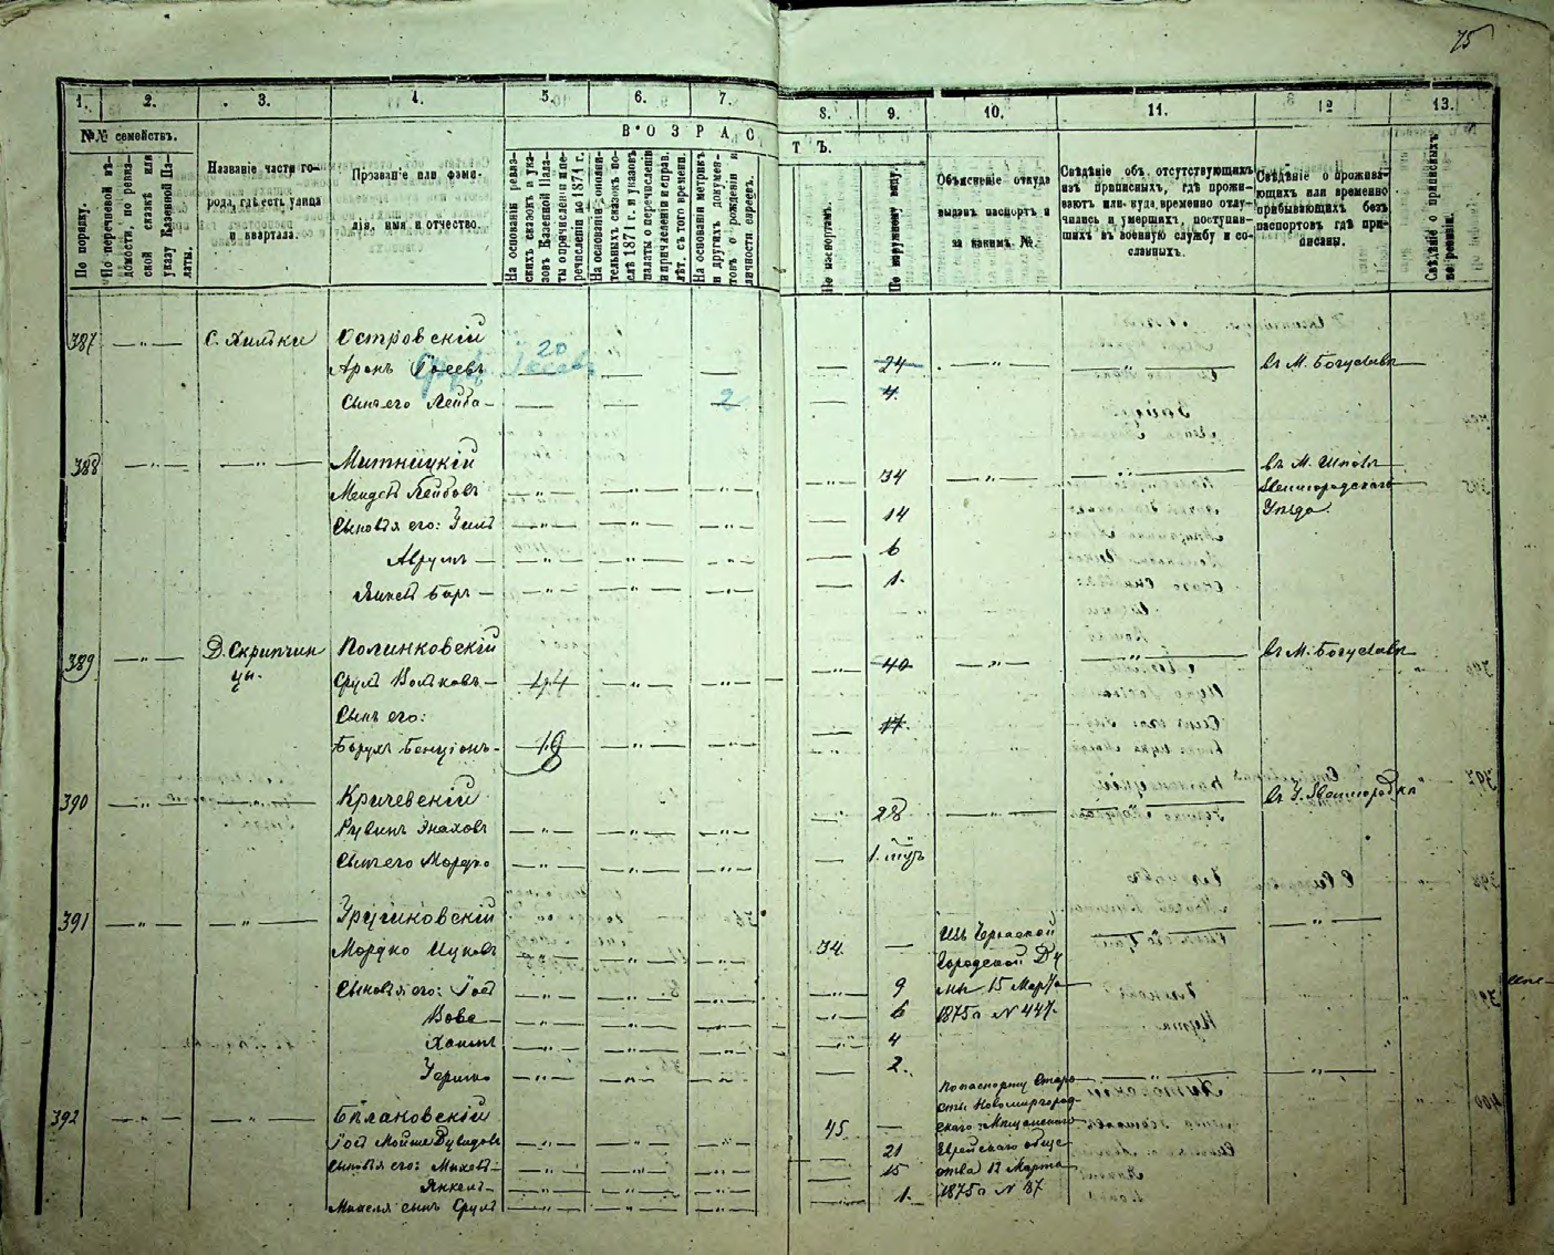 75
1. 2. 3. 4. 5. 6. 7. 8. 9. 10. 11. 12 13.
№№ семействъ.
По порядку.
По перечневой вѣдомости, по ревизской сказкѣ или указу Казенной Палаты.
Названіе части города, гдѣ есть улица и квартала.
Прозваніе или фамилія, имя и отчество.
ВОЗРАСТЪ.
На основаніи ревизскихъ сказокъ и указовъ Казенной Палаты о причисленіи и перечисленіи до 1874 г.
На основаніи дополнительныхъ сказокъ послѣ 1874 г. и указовъ палаты о перечисленіи и причисленіи и исправ. лѣт. съ того времени.
На основаніи метрикъ и другихъ документовъ о рожденіи и личности евреевъ.
По паспортамъ.
По наружному виду.
Объясненіе откуда выданъ паспортъ и за какимъ №.
Свѣдѣніе объ отсутствующихъ изъ приписныхъ, гдѣ проживаютъ или куда временно отлучились и умершихъ, поступившихъ въ военную службу и сосланныхъ.
Свѣдѣніе о проживающихъ или временно прибывающихъ безъ паспортовъ гдѣ приписаны.
Свѣдѣніе о приписныхъ по ревизіи.
387 — " — С. Хильки Островскій
20
Аронъ — — — — 24 — " — — " — въ М. Богуславѣ
Сынъ его Лейба — — — 2 — 4.
388 — " — — " — Митницкій — " — 34 — " — — " — въ М. Шполѣ
Мендель Лейбовъ — " — — " — — " — Звенигородскаго
Сыновья его: — " — — " — — " — — 14 Уѣзда.
Аврумъ — — " — — " — — " — — 6
— " — — " — — " — — 1.
389 — " — Д. Скрипчин Полинковскій — " — 40 — " — — " — въ М. Богуславѣ
цы.
Сруль Вольковъ — 44 — " — — " —
Сынъ его: — " — 17.
Борухъ Бенціонъ — 19 — " — — " —
390 — " — — " — Кричевскій — " — 28 — " — — " — въ У. Звенигородка
Рувинъ — " — — " — — " —
Сынъ его Мордко — " — — " — — " — — 1.
391 — " — — " — — " — — " —
Мордко Ицковъ — " — — " — — " — 34. — Изъ Городской Ду
Сыновья его: — " — — " — — " — — " — 9 мы 15 Марта
Вове — — " — — " — — " — — " — 6 1875 г. № 447.
Хаимъ — " — — " — — " — — " — 4
— " — — " — — " — — 2.
392 — " — — " — Бѣлановскій 45. — По паспорту Старо
сты Новомиргород
скаго Мѣщанскаго
Мойше Дувидовъ — " — — " — — " — — 21 Еврейскаго обще
Сыновья его: — " — — " — — " — — 15 ства 12 Марта
Янкель — — " — — " — — " — — 1. 1875 г. № 87
сынъ Сруль — " — — " — — " —